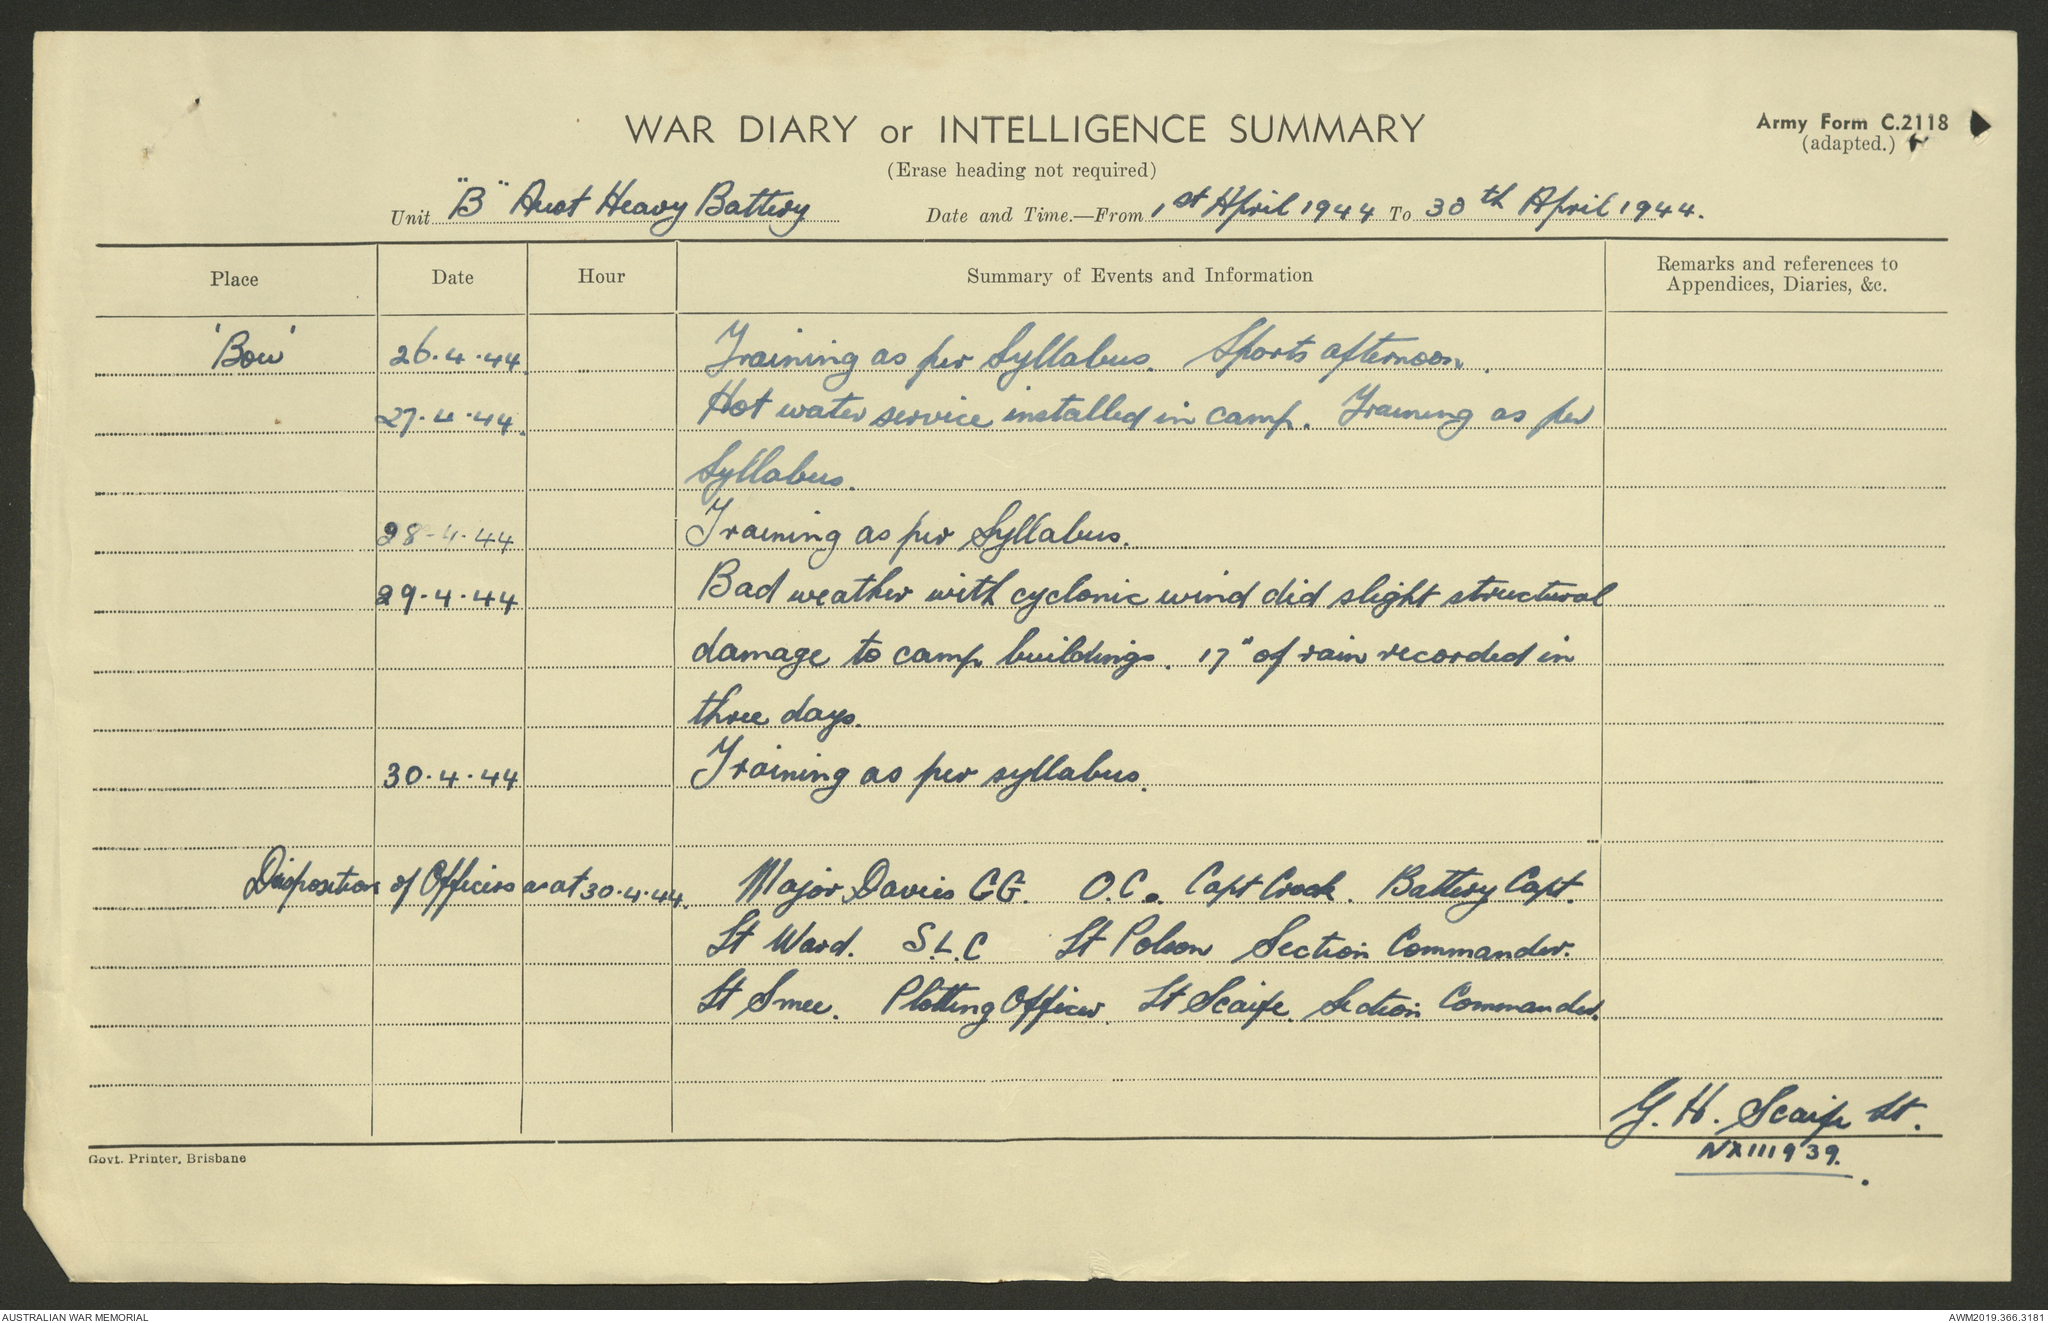 WAR DIARY or INTELLIGENCE SUMMARY
Army Form C.2118
(adapted.)
(Erase heading not required)
Unit "B" Aust Heavy Battery Date and Time.—From 1st April 1944 To 30th April 1944.
Place Date Hour Summary of Events and Information Remarks and references to
Appendices, Diaries, &c.
'Bow' 26.4.44. Training as per Syllabus. Sports afternoon.
27.4.44. Hot water service installed in camp. Training as per
Syllabus.
28.4.44 Training as per Syllabus.
29.4.44 Bad weather with cyclonic wind did slight structural
damage to camp buildings. 17" of rain recorded in
three days.
30.4.44 Training as per syllabus.
Disposition of Officers as at 30.4.44. Major Davies G G. O.C. Capt Crook. Battery Capt.
Lt Ward. S.L.C Lt Polson Section Commander.
Lt Smee. Plotting Officer. Lt Scaife. Section Commander.
G. H. Scaife Lt.
NX111939.
Govt. Printer, Brisbane
AUSTRALIAN WAR MEMORIAL
AWM2019.366.3181